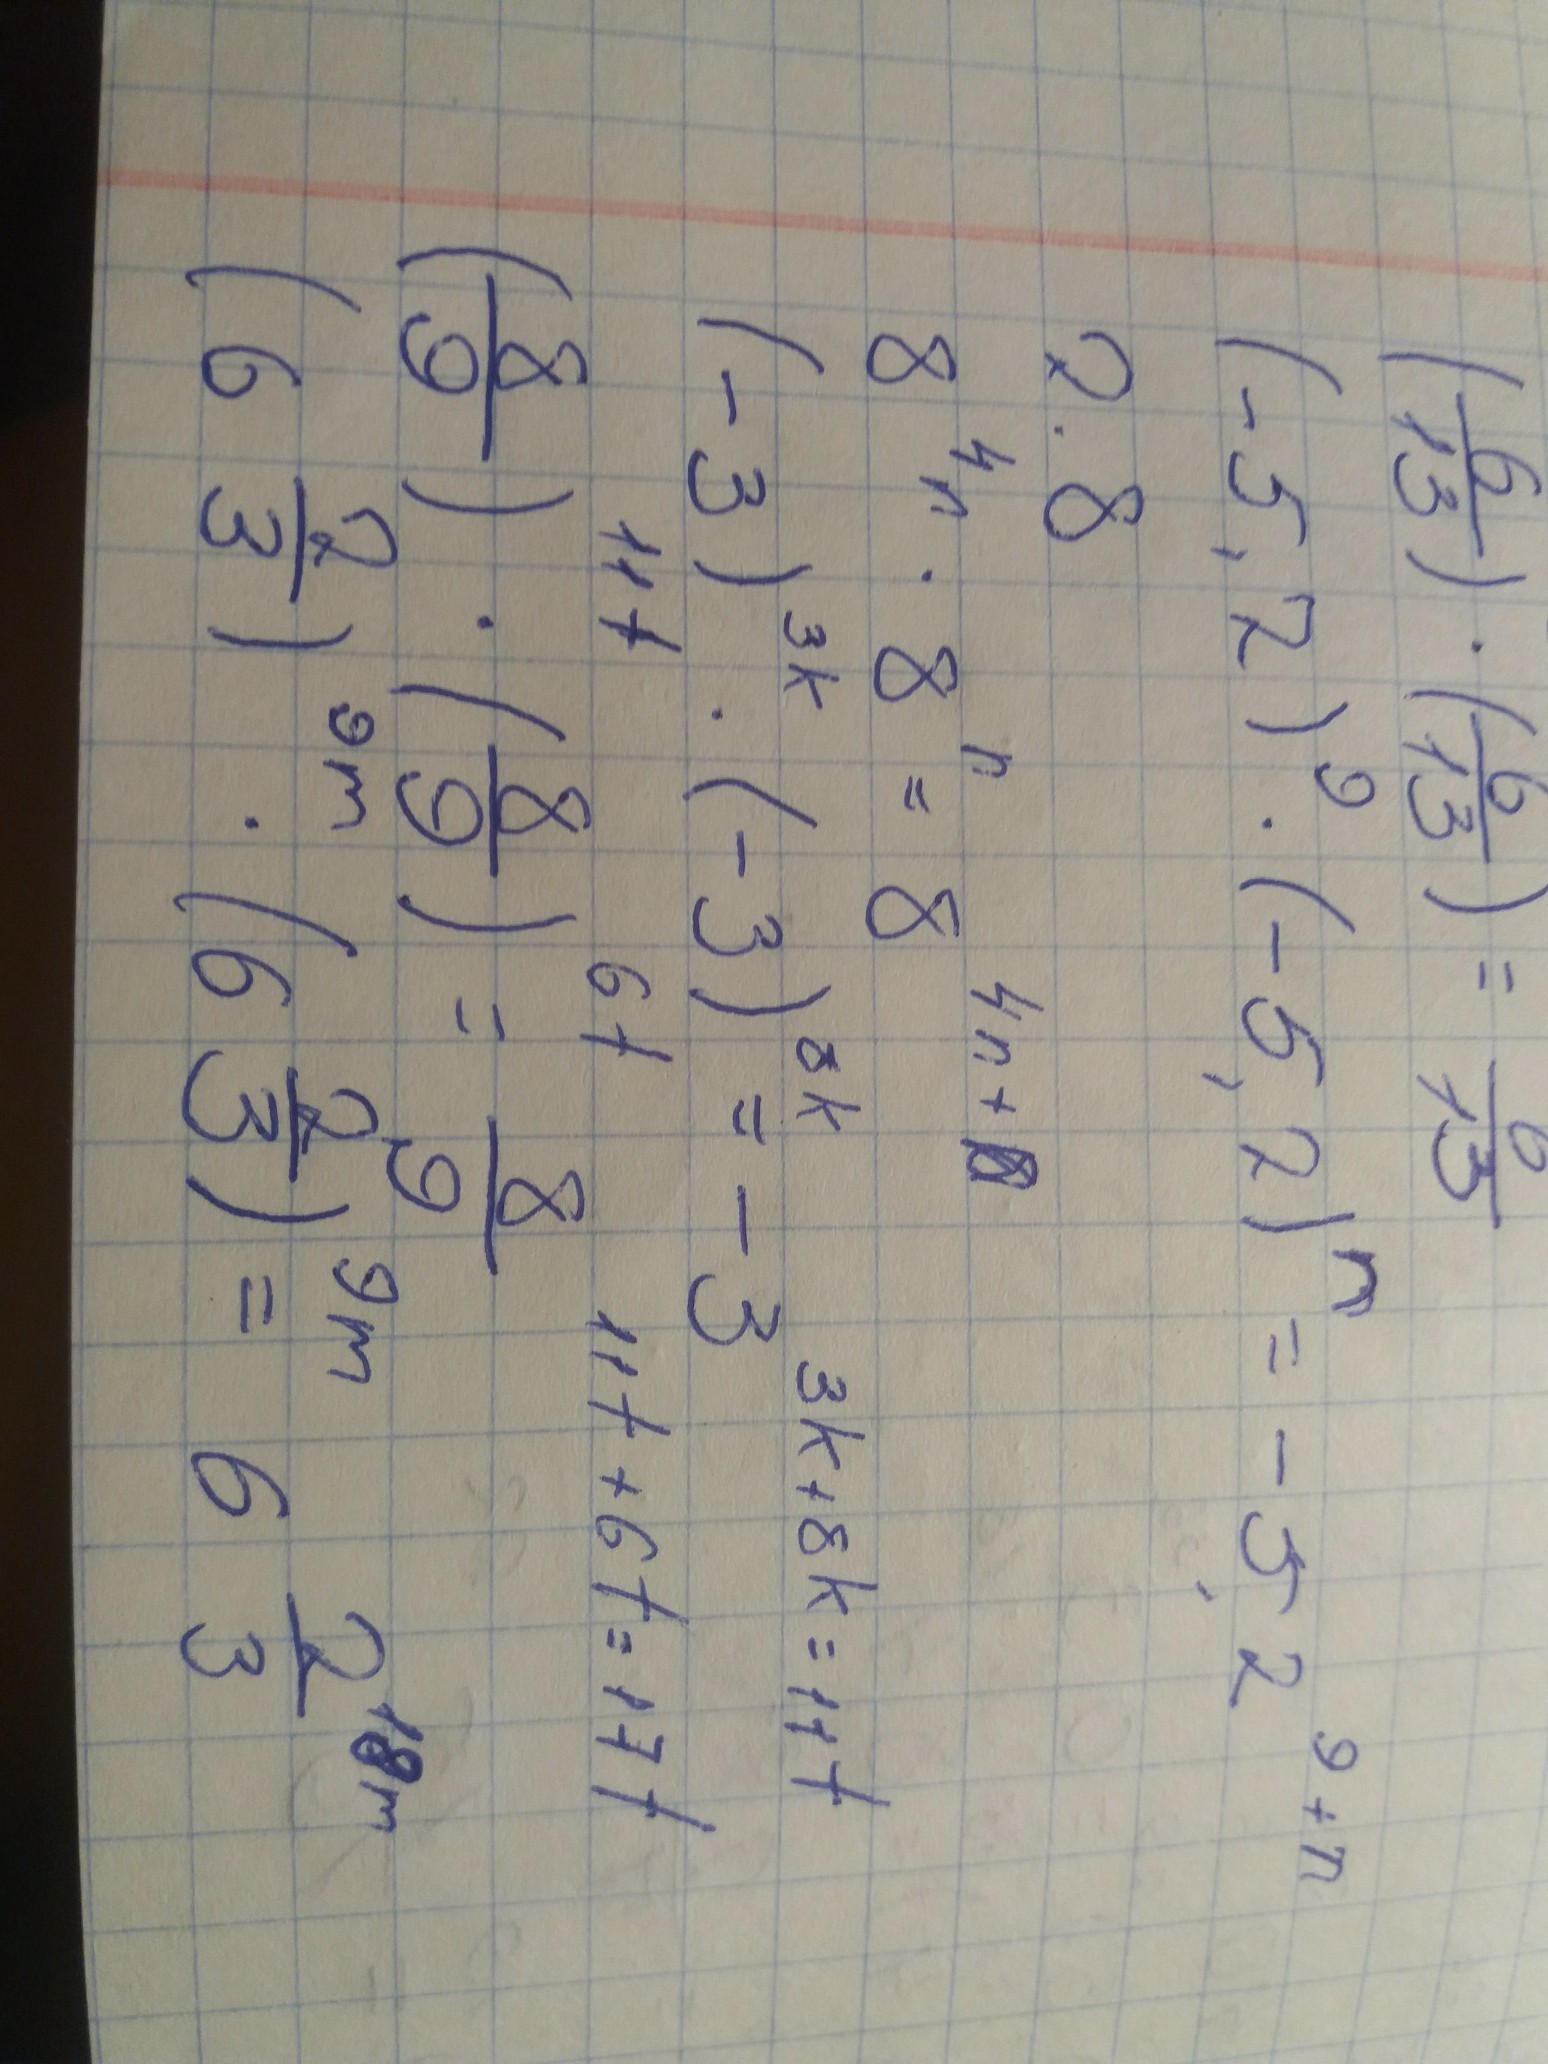 (6/13) · (6/13) = 6/13
(-5,2)⁹ · (-5,2)ⁿ = -5,2⁹⁺ⁿ
2.8
8⁴ⁿ · 8ⁿ = 8⁴ⁿ⁺
(-3)³ᵏ · (-3)⁸ᵏ = -3 ³ᵏ⁺⁸ᵏ⁼¹¹ᵗ
(8/9)¹¹ᵗ · (8/9)⁶ᵗ = 8/9 ¹¹ᵗ⁺⁶ᵗ⁼¹⁷ᵗ
(6 2/3)⁹ᵐ · (6 2/3)⁹ᵐ = 6 2/3 ¹⁸ᵐ